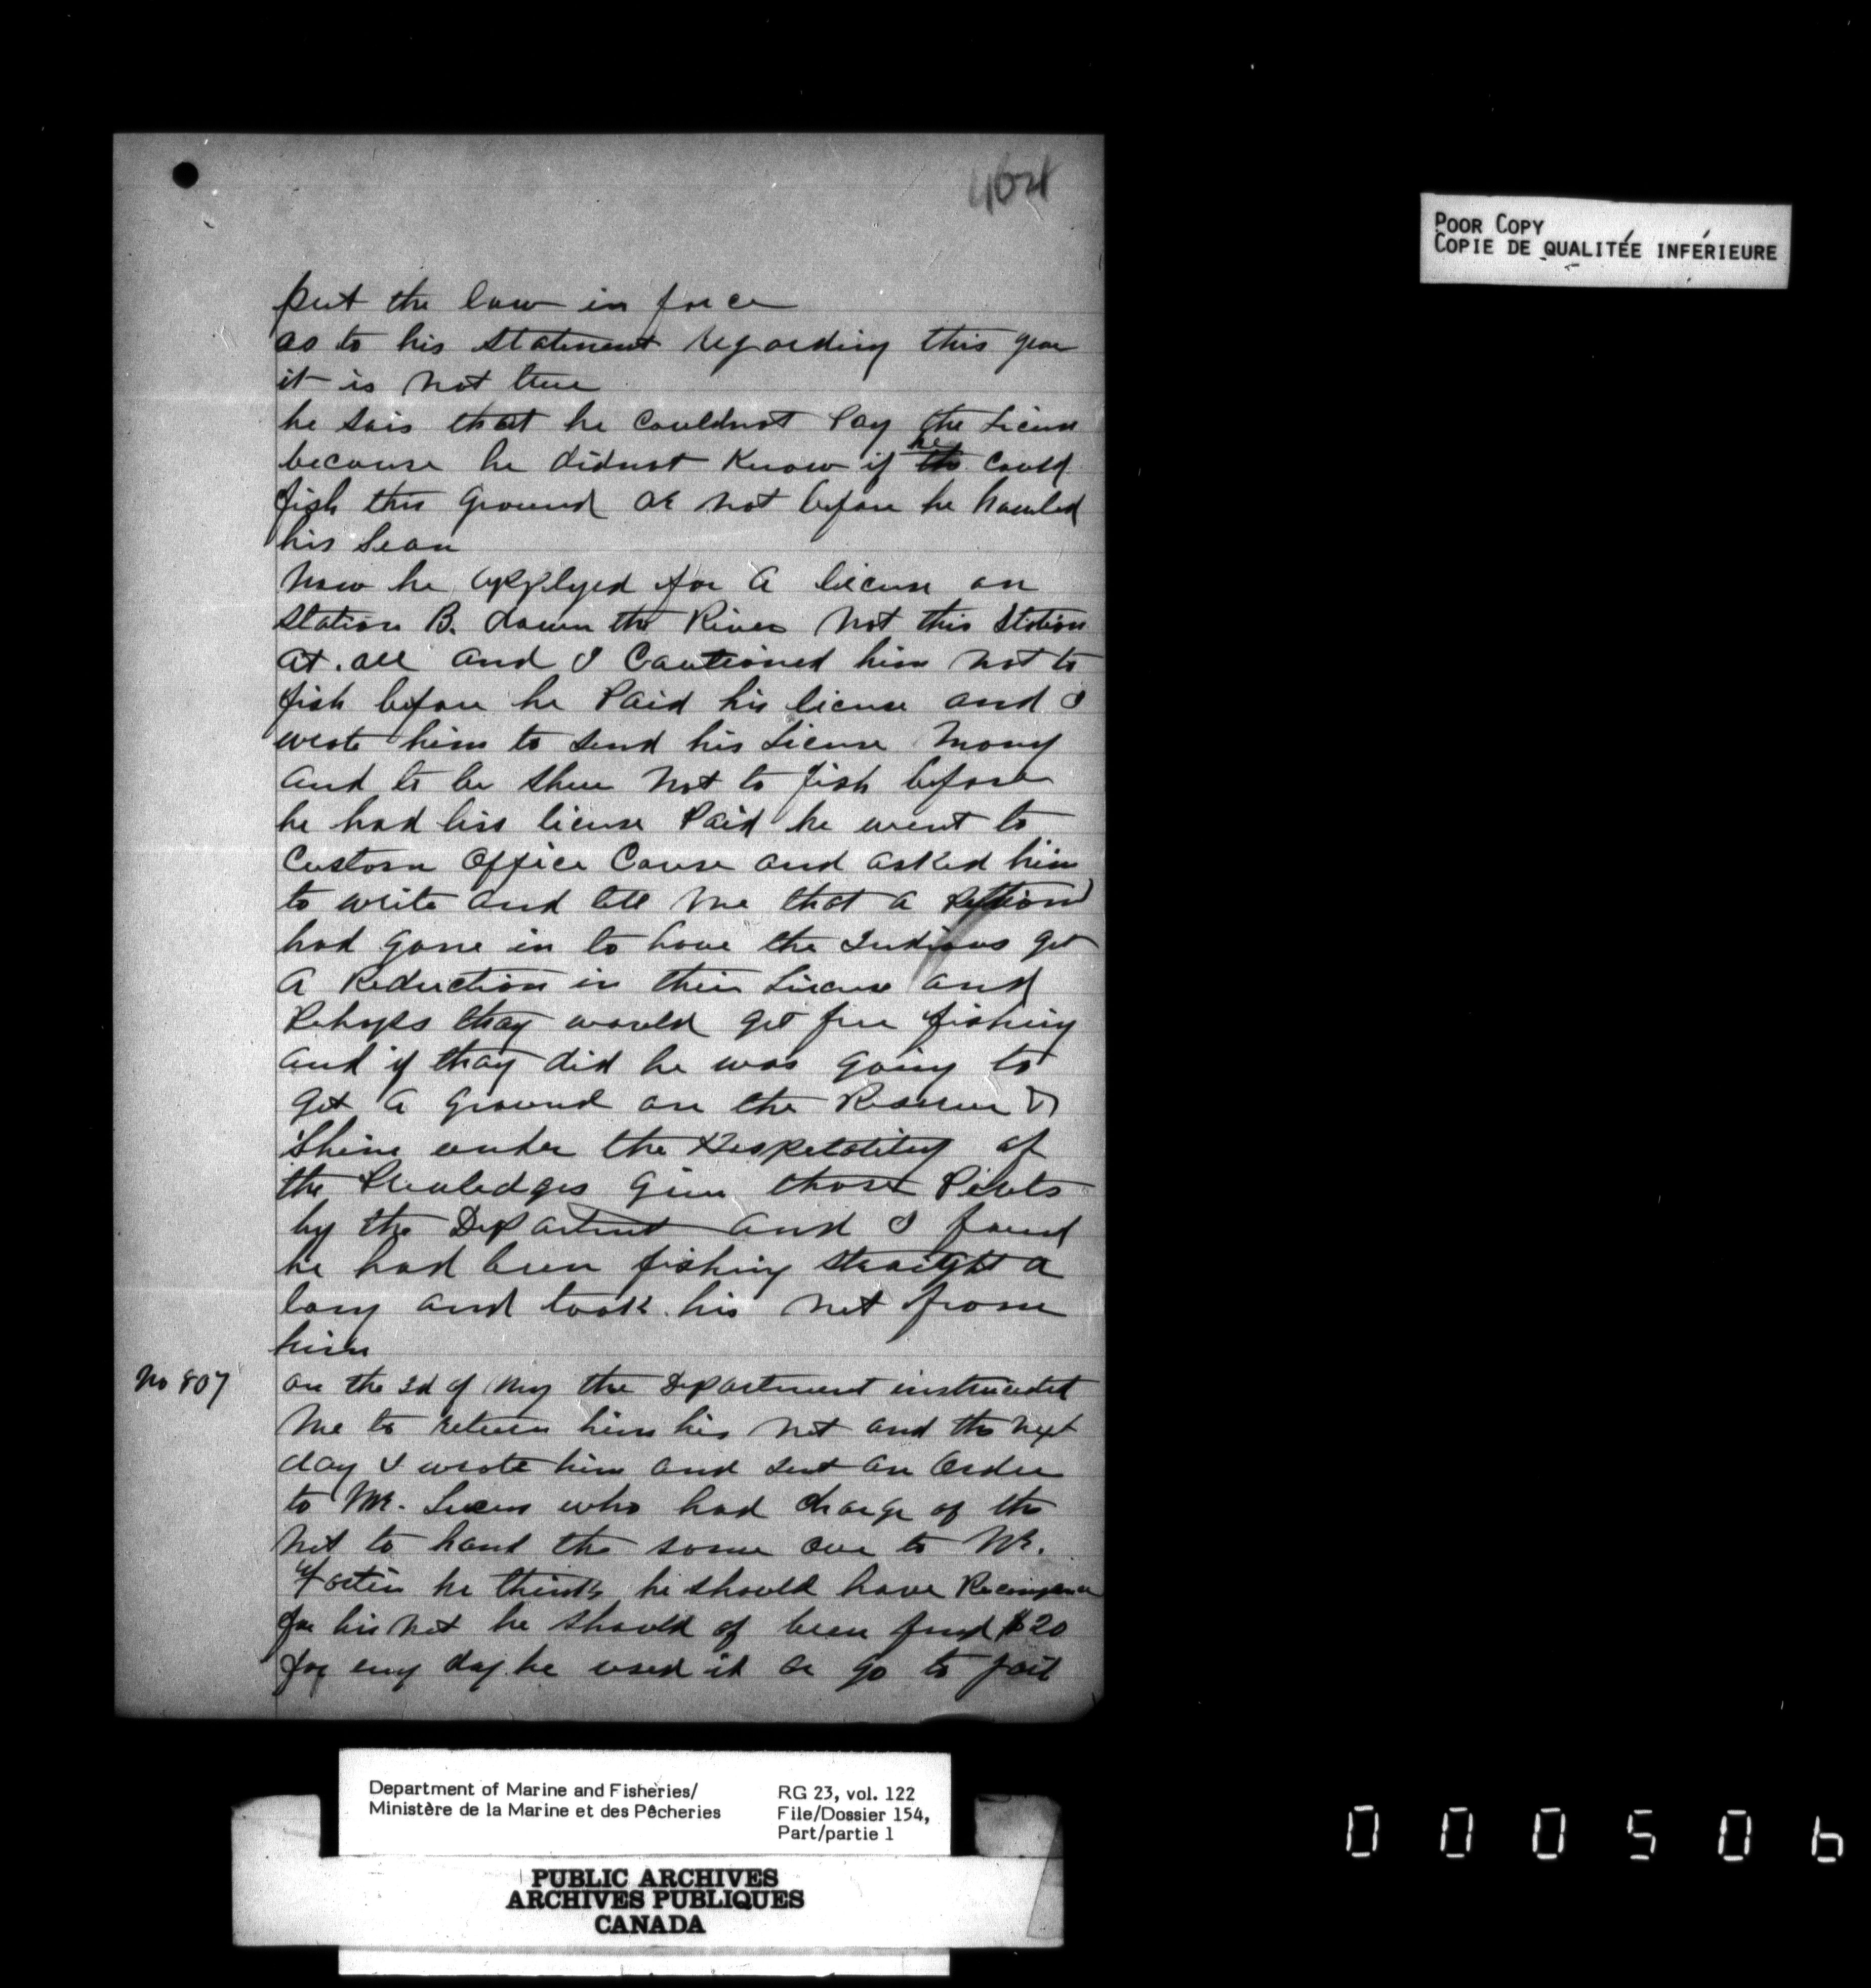 464
POOR COPY
COPIE DE QUALITÉE INFÉRIEURE
put the law in force
as to his statement regarding this year
it is not true
he sais that he couldnot Pay the License
because he didnot Know if he could
fish this ground or not before he hauled
his Sean
Now he applyed for a license on
Station B. down the River Not this Station
at. all and I Cautioned him not to
fish before he Paid his license and I
wrote him to send his License Mony
and to be shure Not to fish before
he had his license Paid he went to
Custom Office and asked him
to write and tell me that a Petition
had gone in to have the Indians get
a Reduction in their License and
Pehaps thay would get free fishing
and if thay did he was going to
get a ground on the Reserve &
Shine under the Hespetality of
the given those
by the Department and I found
he had been fishing straight a
long and took his net from
him
No 807
on the 2d of My the Department instructed
Me to return him his net and the next
day I wrote him and sent an Order
to Mr. who had charge of the
Net to hand the same over to Mr.
he thinks he should have
for his net he should of been fined $20
for evry day he used it or go to jail
Department of Marine and Fisheries/
Ministère de la Marine et des Pêcheries
RG 23, vol. 122
File/Dossier 154,
Part/partie 1
PUBLIC ARCHIVES
ARCHIVES PUBLIQUES
CANADA
000506